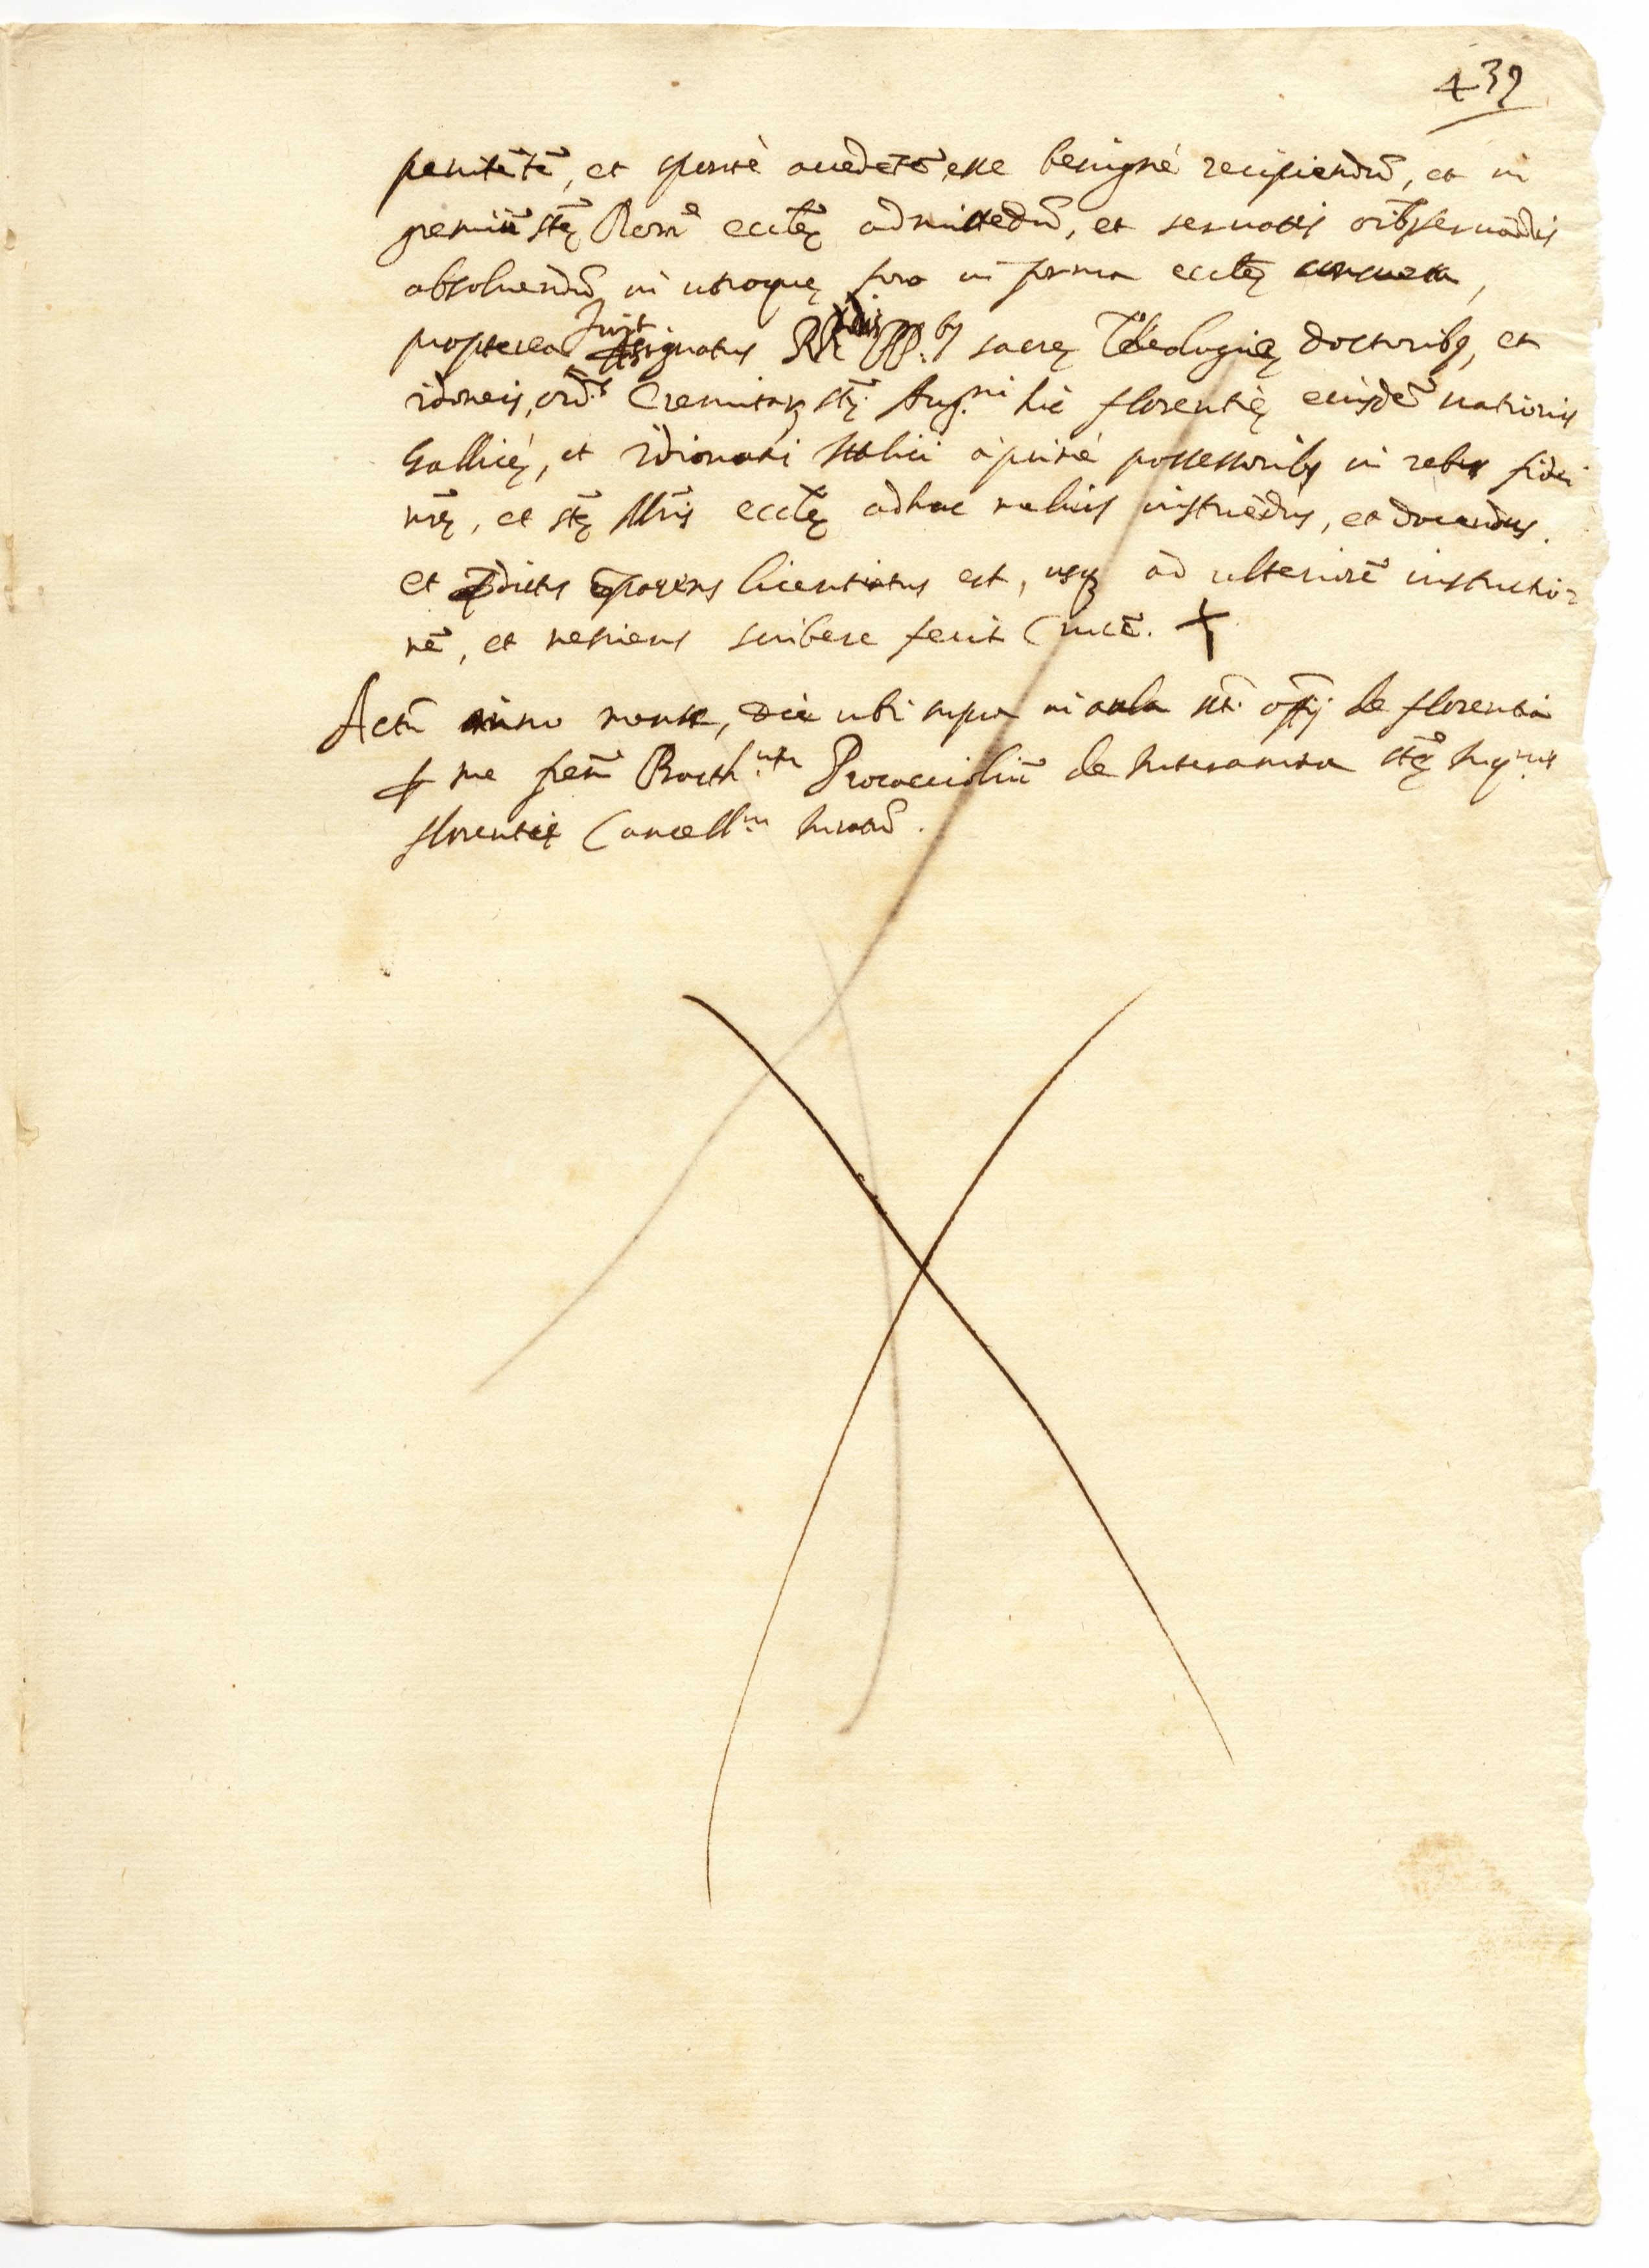 439
penitẽtẽ, et spontè accedẽtẽ esse benignè recipiendũ, et in
gremiũ stę Romę eccłę admittẽdũ, et seruatis oĩbꝫ seruãdis
absoluendũ in utroque foro in forma eccłę consueta,
propterea fuit assignatus RR. PP.bꝫ sacrę Theologię doctoribꝫ, et
idoneis, ord.s Eremitaꝝ sti. Aug.ni hic florentię eiusdẽ nationis
Gallicę, et idiomati Italici à puritè possessoribꝫ in rebus fidei
nrę, et stę Mris eccłę adhuc melius instruẽdus, et docendus.
et p̃dictus cõparens licentiatus est, usqꝫ ad ulteriorẽ instructio=
nẽ, et nesciens scribere fecit Crucẽ. +
Actũ anno mense, die ubi supra in aula sti. offij de florentia
ꝑ me frem Barth.um Procacciolũ de Interamna stę Inq.nis
florentię Cancell.m Iuratũ.